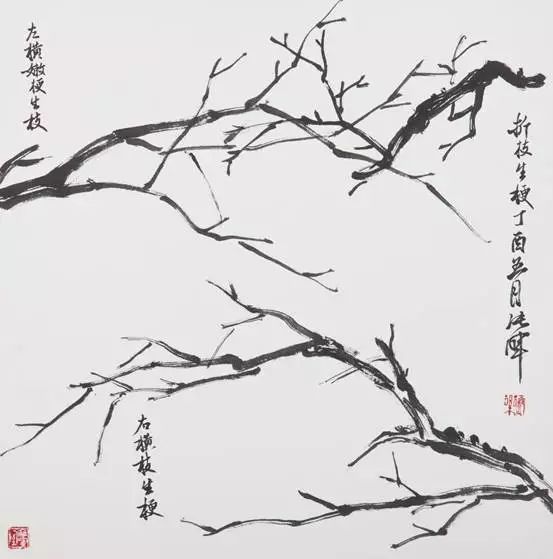 左横嫩梗生枝
折枝生梗丁酉五月
右横枝生梗